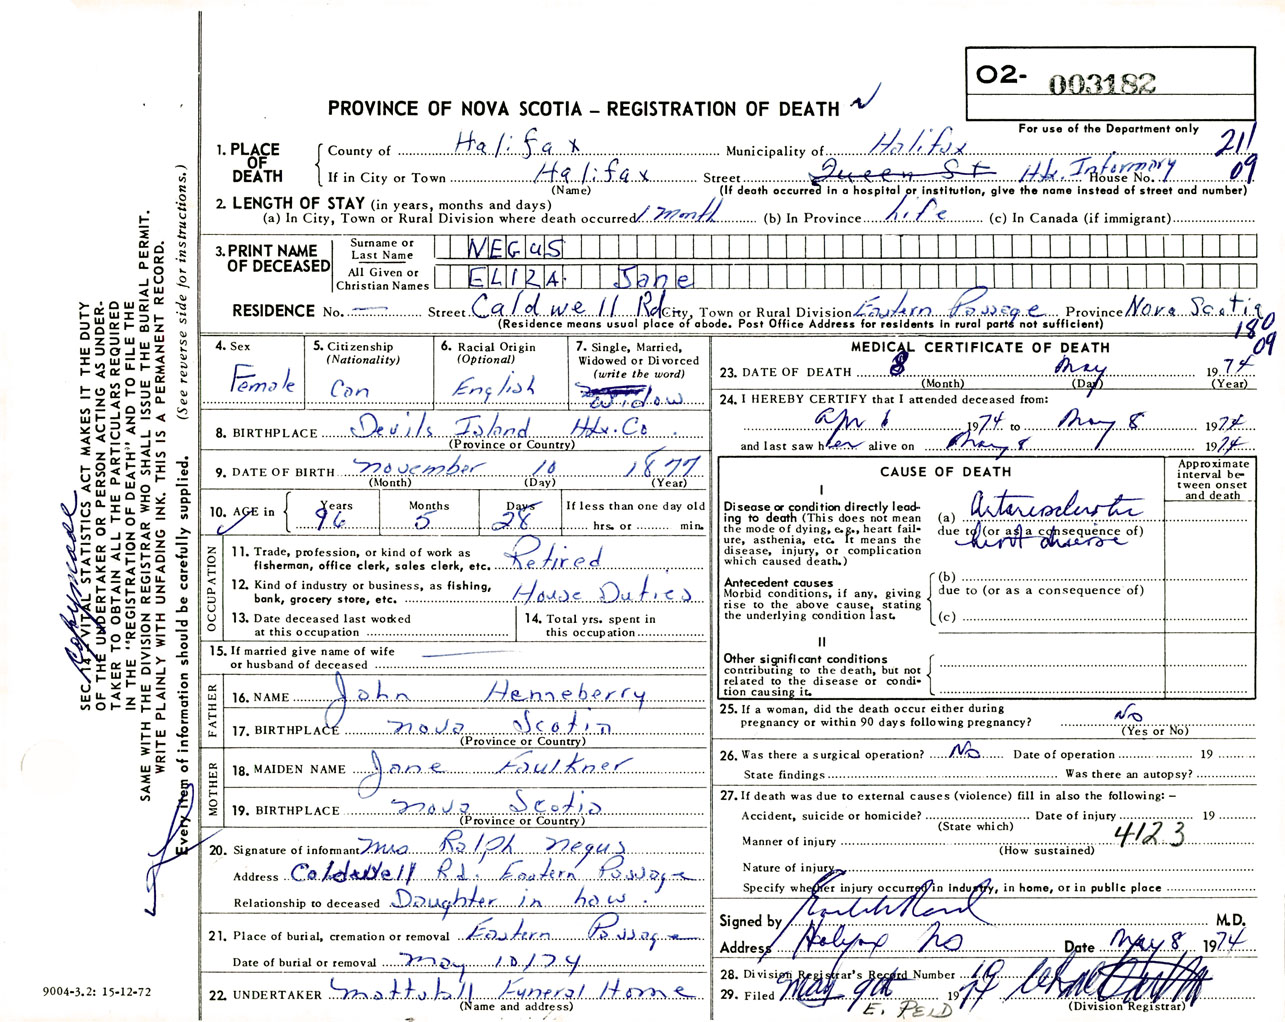 O2- 003182
PROVINCE OF NOVA SCOTIA – REGISTRATION OF DEATH
For use of the Department only
211
09
1. PLACE OF DEATH
County of Halifax Municipality of Halifax
If in City or Town Halifax Street Queen St Hx. Infirmary House No.
(Name) (If death occurred in a hospital or institution, give the name instead of street and number)
2. LENGTH OF STAY (in years, months and days)
(a) In City, Town or Rural Division where death occurred 1 month (b) In Province Life (c) In Canada (if immigrant)
3. PRINT NAME OF DECEASED
Surname or Last Name NEGUS
All Given or Christian Names ELIZA Jane
RESIDENCE No. — Street Caldwell Rd City, Town or Rural Division Eastern Passage Province Nova Scotia
(Residence means usual place of abode. Post Office Address for residents in rural parts not sufficient)
180
09
4. Sex Female
5. Citizenship (Nationality) Can
6. Racial Origin (Optional) English
7. Single, Married, Widowed or Divorced (write the word) Widow
8. BIRTHPLACE Devils Island Hx. Co.
(Province or Country)
9. DATE OF BIRTH November 10 1877
(Month) (Day) (Year)
10. AGE in Years 96 Months 5 Days 28 If less than one day old hrs. or min.
OCCUPATION
11. Trade, profession, or kind of work as fisherman, office clerk, sales clerk, etc. Retired
12. Kind of industry or business, as fishing, bank, grocery store, etc. House Duties
13. Date deceased last worked at this occupation
14. Total yrs. spent in this occupation
15. If married give name of wife or husband of deceased
FATHER
16. NAME John Henneberry
17. BIRTHPLACE Nova Scotia
(Province or Country)
MOTHER
18. MAIDEN NAME Jane Faulkner
19. BIRTHPLACE Nova Scotia
(Province or Country)
20. Signature of informant Mrs Ralph Negus
Address Caldwell Rd. Eastern Passage
Relationship to deceased Daughter in haw.
21. Place of burial, cremation or removal Eastern Passage
Date of burial or removal May 10/74
22. UNDERTAKER Mattatall Funeral Home
(Name and address)
MEDICAL CERTIFICATE OF DEATH
23. DATE OF DEATH 8 May 1974
(Month) (Day) (Year)
24. I HEREBY CERTIFY that I attended deceased from:
Apr 6 1974 to May 8 1974
and last saw her alive on May 8 1974
CAUSE OF DEATH
Approximate interval between onset and death
I
Disease or condition directly leading to death (This does not mean the mode of dying, e.g., heart failure, asthenia, etc. It means the disease, injury, or complication which caused death.)
(a) Arteriosclerotic
due to (or as a consequence of)
heart disease
Antecedent causes
Morbid conditions, if any, giving rise to the above cause, stating the underlying condition last.
(b)
due to (or as a consequence of)
(c)
II
Other significant conditions
contributing to the death, but not related to the disease or condition causing it.
25. If a woman, did the death occur either during pregnancy or within 90 days following pregnancy? No
(Yes or No)
26. Was there a surgical operation? No Date of operation 19
State findings Was there an autopsy?
27. If death was due to external causes (violence) fill in also the following: –
Accident, suicide or homicide? Date of injury 19
(State which)
Manner of injury 4123
(How sustained)
Nature of injury
Specify whether injury occurred in industry, in home, or in public place
Signed by M.D.
Address Halifax NS Date May 8 1974
28. Division Registrar's Record Number
29. Filed May 9th 1974
(Division Registrar)
E. REID
SEC. 14 VITAL STATISTICS ACT MAKES IT THE DUTY
OF THE UNDERTAKER OR PERSON ACTING AS UNDER-
TAKER TO OBTAIN ALL THE PARTICULARS REQUIRED
IN THE "REGISTRATION OF DEATH" AND TO FILE THE
SAME WITH THE DIVISION REGISTRAR WHO SHALL ISSUE THE BURIAL PERMIT.
WRITE PLAINLY WITH UNFADING INK. THIS IS A PERMANENT RECORD.
Every item of information should be carefully supplied. (See reverse side for instructions.)
9004-3.2: 15-12-72